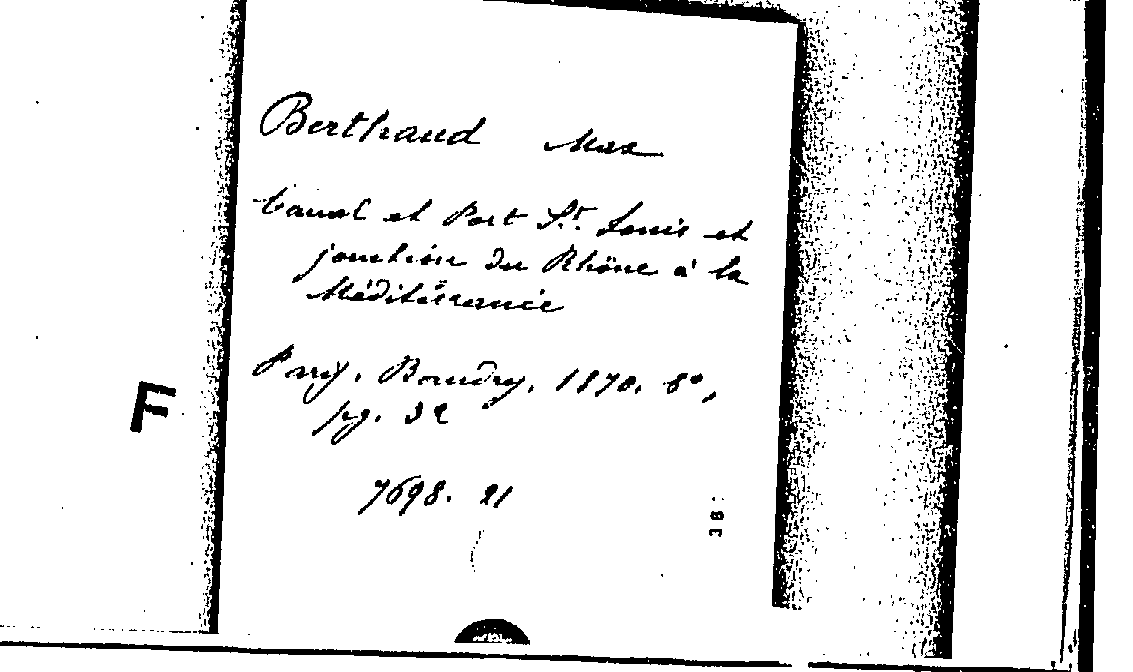 Berthaud Max
Canal et Port St. Louis et
jonction du Rhône à la
Méditérranée
Parij. Bourdry. 1870. 8°,
pg. 32
7698. 21
F
38